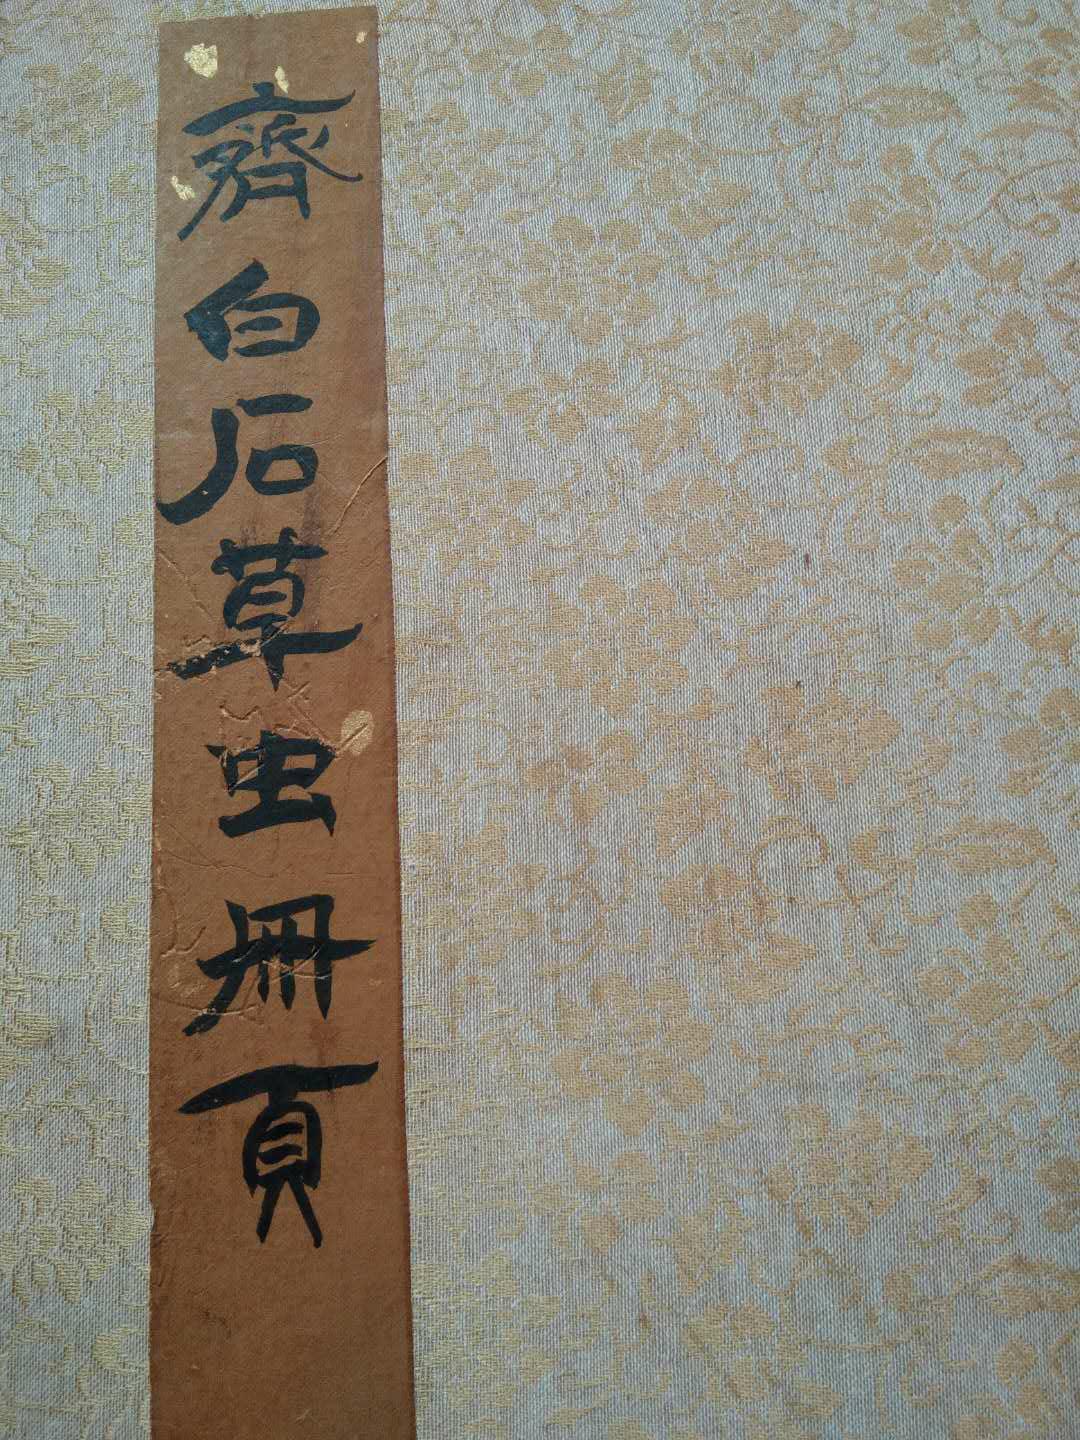 齊白石草虫冊頁